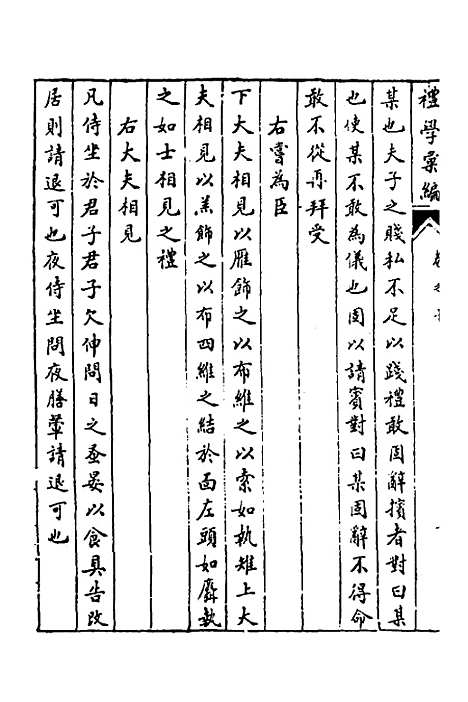 禮學彙編
某也夫子之賤私不足以踐禮敢固辭擯者對曰某
也使某不敢為儀也固以請賓對曰某固辭不得命
敢不從再拜受
右嘗為臣
下大夫相見以雁飾之以布維之以索如執雉上大
夫相見以羔飾之以布四維之結於面左頭如麛執
之如士相見之禮
右大夫相見
凡侍坐於君子君子欠伸問日之蚤晏以食具告改
居則請退可也夜侍坐問夜膳葷請退可也